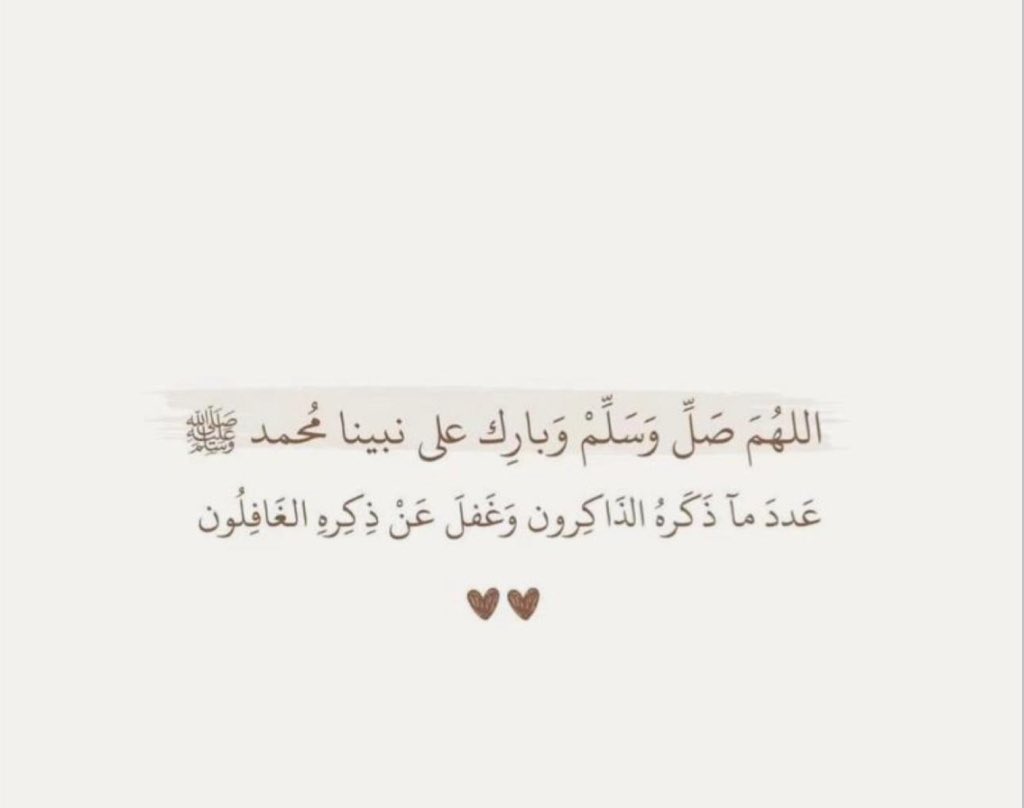 اللهُمَ صَلِّ وَسَلِّمْ وَبارِك على نبينا مُحمد ﷺ
عَددَ مآ ذَكَرهُ الذَاكِرون وَغَفلَ عَنْ ذِكِرهِ الغَافِلُون